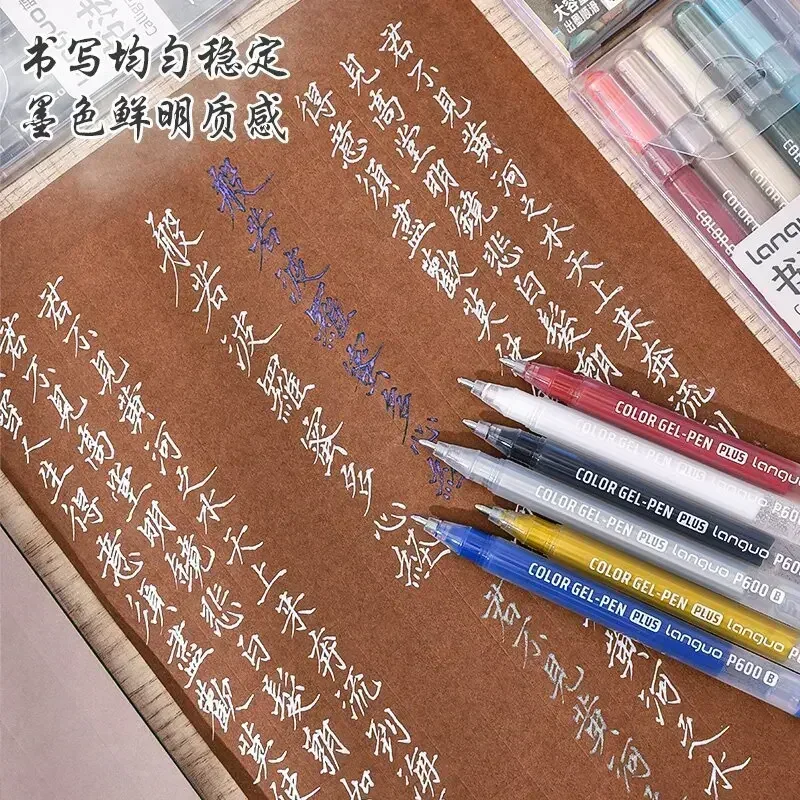 书写均匀稳定
墨色鲜明质感
君不見黄河之水天上来奔流到
見高堂明鏡悲白髮朝
得意須盡歡莫使
般若波羅蜜多心經
般若波羅蜜多心經
君不見黄河之水天上来奔流到海
君不見高堂明鏡悲白髮朝如
人生得意須盡歡莫使
COLOR GEL-PEN PLUS languo P600
COLOR GEL-PEN PLUS languo P600
COLOR GEL-PEN PLUS languo P600 B
COLOR GEL-PEN PLUS languo P600 B
君不見黄河
黄河之水
COLOR
COLOR
COLOR
languo
书